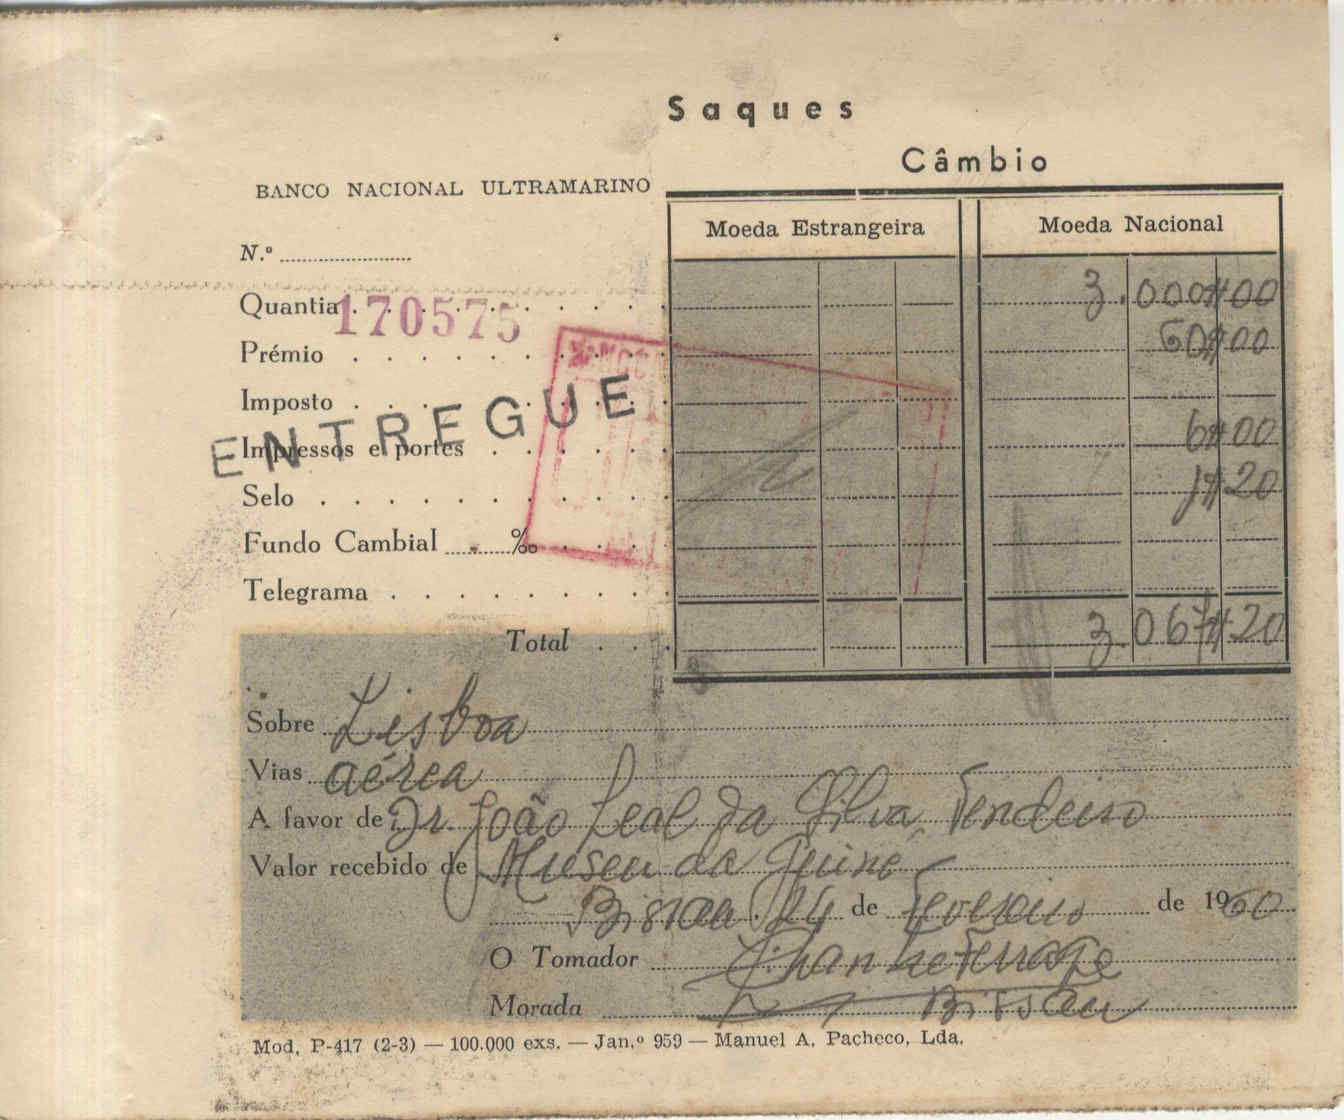 Saques
Câmbio
BANCO NACIONAL ULTRAMARINO
Moeda Estrangeira Moeda Nacional
N.º
Quantia 170575 3.000$00
Prémio 60$00
Imposto
ENTREGUE
Impressos e portes 6$00
Selo 1$20
Fundo Cambial ‰
Telegrama
Total 3.067$20
Sobre Lisboa
Vias aérea
A favor de Dr. João Leal da Silva Tendeiro
Valor recebido de Museu da Guiné
Bissau, 24 de Fevereiro de 1960
O Tomador
Morada Bissau
Mod. P-417 (2-3) — 100.000 exs. — Jan.º 959 — Manuel A. Pacheco, Lda.